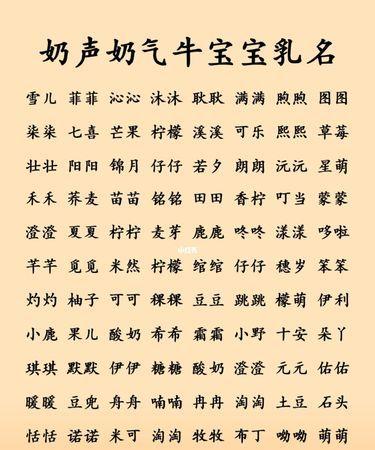 奶声奶气牛宝宝乳名
雪儿 菲菲 沁沁 沐沐 耿耿 满满 煦煦 图图
柒柒 七喜 芒果 柠檬 溪溪 可乐 熙熙 草莓
壮壮 阳阳 锦月 仔仔 若夕 朗朗 沅沅 星萌
禾禾 荞麦 苗苗 铭铭 田田 香柠 叮当 蒙蒙
澄澄 夏夏 柠柠 麦芽 鹿鹿 咚咚 漾漾 哆啦
芊芊 觅觅 米然 柠檬 绾绾 仔仔 穗岁 笨笨
灼灼 柚子 可可 稞稞 豆豆 跳跳 檬萌 伊利
小鹿 果儿 酸奶 希希 霜霜 小野 十安 朵丫
琪琪 默默 伊伊 糖糖 酸奶 澄澄 元元 佑佑
暖暖 豆兜 舟舟 喃喃 冉冉 淘淘 土豆 石头
恬恬 诺诺 米可 淘淘 牧牧 布丁 呦呦 萌萌
小红书